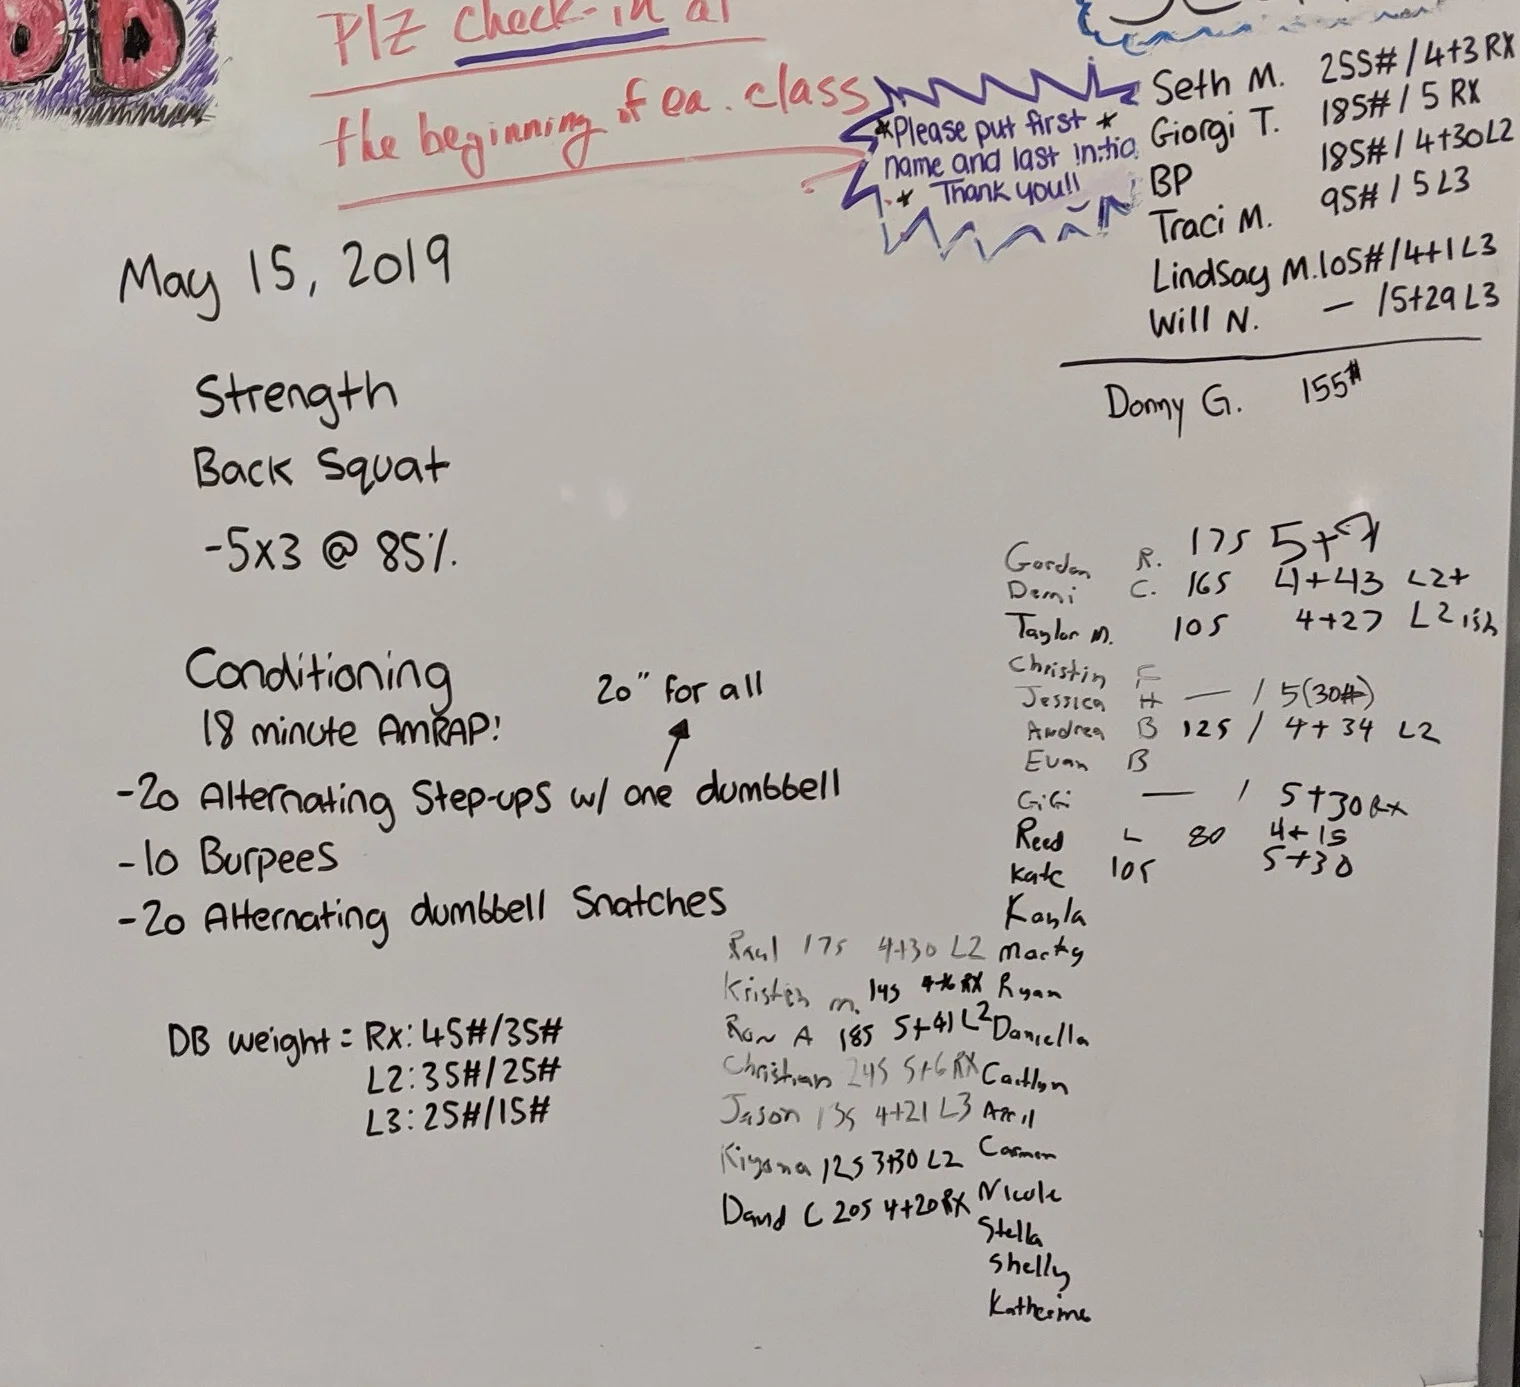 Plz check-in at
the beginning of ea. class
*Please put first *
name and last initia
* Thank you!!
Seth M. 255# / 4+3 RX
Giorgi T. 185# / 5 RX
BP 185# / 4+30 L2
Traci M. 95# / 5 L3
Lindsay M. 105# / 4+1 L3
Will N. — / 5+29 L3
Donny G. 155#
May 15, 2019
Strength
Back Squat
-5x3 @ 85%.
Conditioning
18 minute AMRAP!
20" for all
-20 Alternating Step-ups w/ one dumbbell
-10 Burpees
-20 Alternating dumbbell Snatches
DB weight = Rx: 45#/35#
L2: 35#/25#
L3: 25#/15#
Gordon R. 175 5+7
Demi C. 165 4+43 L2+
Taylor M. 105 4+27 L2 ish
Christin F
Jessica H — / 5(30#)
Andrea B 125 / 4+34 L2
Evan B
GiGi — / 5+30 Rx
Reed L 80 4+15
Kate 105 5+30
Kayla
Raul 175 4+30 L2 Marky
Kristen M. 145 RX Ryan
Ron A 185 5+41 L2 Daniella
Christian 245 5+6 RX Caitlyn
Jason 135 4+21 L3 April
Kiyana 125 3+30 L2 Carmen
David C 205 4+20 RX Nicole
Stella
Shelly
Katherine